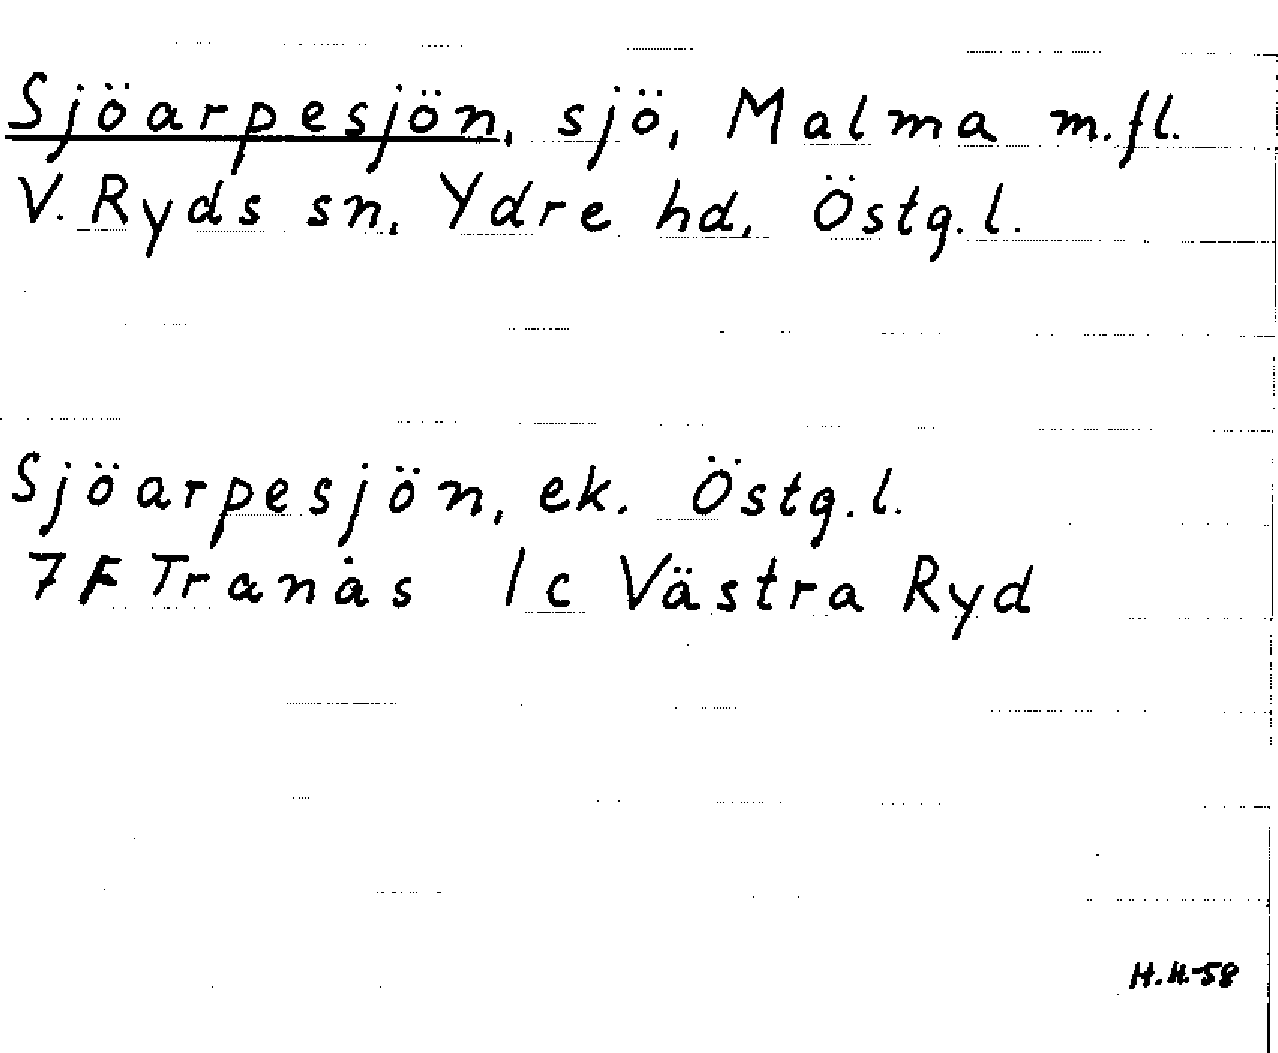 Sjöarpesjön, sjö, Malma m.fl.
V. Ryds sn, Ydre hd, Östg.l.
Sjöarpesjön, ek. Östg.l.
7F Tranås 1c Västra Ryd
H.H-58